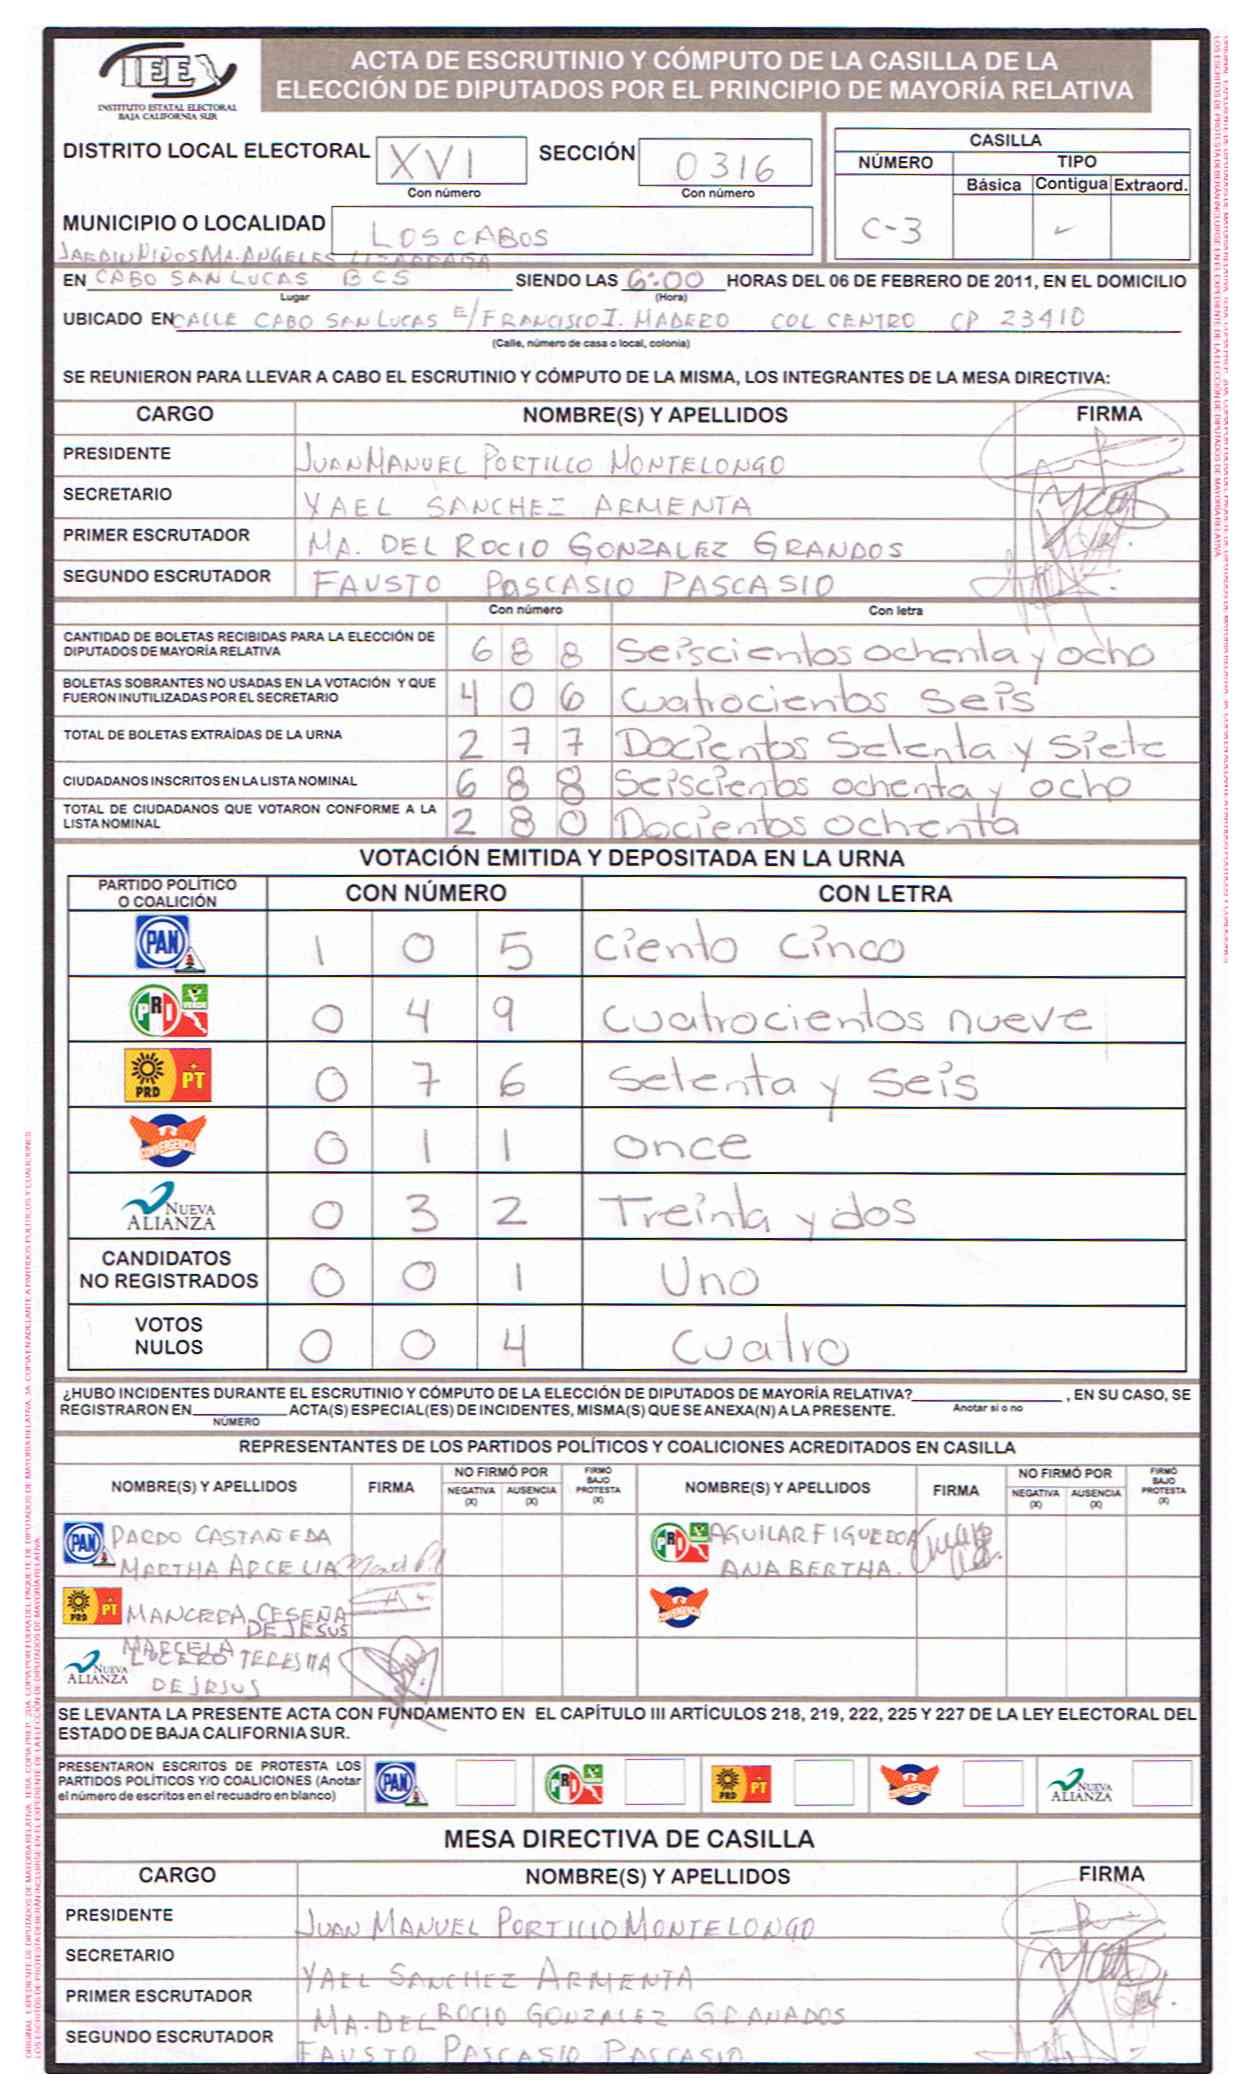 IEE
INSTITUTO ESTATAL ELECTORAL
BAJA CALIFORNIA SUR
ACTA DE ESCRUTINIO Y CÓMPUTO DE LA CASILLA DE LA
ELECCIÓN DE DIPUTADOS POR EL PRINCIPIO DE MAYORÍA RELATIVA
DISTRITO LOCAL ELECTORAL XVI SECCIÓN 0316
Con número Con número
CASILLA
NÚMERO TIPO
Básica Contigua Extraord.
C-3 ✓
MUNICIPIO O LOCALIDAD LOS CABOS
JARDIN NIÑOS MA. ANGELES LIZARRAGA
EN CABO SAN LUCAS BCS SIENDO LAS 6:00 HORAS DEL 06 DE FEBRERO DE 2011, EN EL DOMICILIO
Lugar (Hora)
UBICADO EN CALLE CABO SAN LUCAS E/ FRANCISCO I. MADERO COL CENTRO CP 23410
(Calle, número de casa o local, colonia)
SE REUNIERON PARA LLEVAR A CABO EL ESCRUTINIO Y CÓMPUTO DE LA MISMA, LOS INTEGRANTES DE LA MESA DIRECTIVA:
CARGO NOMBRE(S) Y APELLIDOS FIRMA
PRESIDENTE JUAN MANUEL PORTILLO MONTELONGO
SECRETARIO YAEL SANCHEZ ARMENTA
PRIMER ESCRUTADOR MA. DEL ROCIO GONZALEZ GRANDOS
SEGUNDO ESCRUTADOR FAUSTO PASCASIO PASCASIO
Con número Con letra
CANTIDAD DE BOLETAS RECIBIDAS PARA LA ELECCIÓN DE
DIPUTADOS DE MAYORÍA RELATIVA 6 8 8 Seiscientos ochenta y ocho
BOLETAS SOBRANTES NO USADAS EN LA VOTACIÓN Y QUE
FUERON INUTILIZADAS POR EL SECRETARIO 4 0 6 Cuatrocientos Seis
TOTAL DE BOLETAS EXTRAÍDAS DE LA URNA 2 7 7 Docientos Setenta y Siete
CIUDADANOS INSCRITOS EN LA LISTA NOMINAL 6 8 8 Seiscientos ochenta y ocho
TOTAL DE CIUDADANOS QUE VOTARON CONFORME A LA
LISTA NOMINAL 2 8 0 Docientos Ochenta
VOTACIÓN EMITIDA Y DEPOSITADA EN LA URNA
PARTIDO POLÍTICO
O COALICIÓN CON NÚMERO CON LETRA
PAN 1 0 5 Ciento Cinco
PRI VERDE 0 4 9 Cuatrocientos nueve
PRD PT 0 7 6 Setenta y Seis
CONVERGENCIA 0 1 1 once
NUEVA ALIANZA 0 3 2 Treinta y dos
CANDIDATOS
NO REGISTRADOS 0 0 1 Uno
VOTOS
NULOS 0 0 4 Cuatro
¿HUBO INCIDENTES DURANTE EL ESCRUTINIO Y CÓMPUTO DE LA ELECCIÓN DE DIPUTADOS DE MAYORÍA RELATIVA? , EN SU CASO, SE
Anotar si o no
REGISTRARON EN ACTA(S) ESPECIAL(ES) DE INCIDENTES, MISMA(S) QUE SE ANEXA(N) A LA PRESENTE.
NÚMERO
REPRESENTANTES DE LOS PARTIDOS POLÍTICOS Y COALICIONES ACREDITADOS EN CASILLA
NOMBRE(S) Y APELLIDOS FIRMA NO FIRMÓ POR NEGATIVA (X) AUSENCIA (X) FIRMÓ BAJO PROTESTA (X) NOMBRE(S) Y APELLIDOS FIRMA NO FIRMÓ POR NEGATIVA (X) AUSENCIA (X) FIRMÓ BAJO PROTESTA (X)
PAN PARDO CASTAÑEDA PRI AGUILAR FIGUEROA
MARTHA ARCELIA ANA BERTHA.
PRD PT MANCERA CESEÑA CONVERGENCIA
DE JESUS
MARCELA
LUCERO TERESITA
NUEVA ALIANZA DE JESUS
SE LEVANTA LA PRESENTE ACTA CON FUNDAMENTO EN EL CAPÍTULO III ARTÍCULOS 218, 219, 222, 225 Y 227 DE LA LEY ELECTORAL DEL
ESTADO DE BAJA CALIFORNIA SUR.
PRESENTARON ESCRITOS DE PROTESTA LOS
PARTIDOS POLÍTICOS Y/O COALICIONES (Anotar
el número de escritos en el recuadro en blanco) PAN PRI PRD PT CONVERGENCIA NUEVA ALIANZA
MESA DIRECTIVA DE CASILLA
CARGO NOMBRE(S) Y APELLIDOS FIRMA
PRESIDENTE JUAN MANUEL PORTILLO MONTELONGO
SECRETARIO YAEL SANCHEZ ARMENTA
PRIMER ESCRUTADOR MA. DEL ROCIO GONZALEZ GRANADOS
SEGUNDO ESCRUTADOR FAUSTO PASCASIO PASCASIO